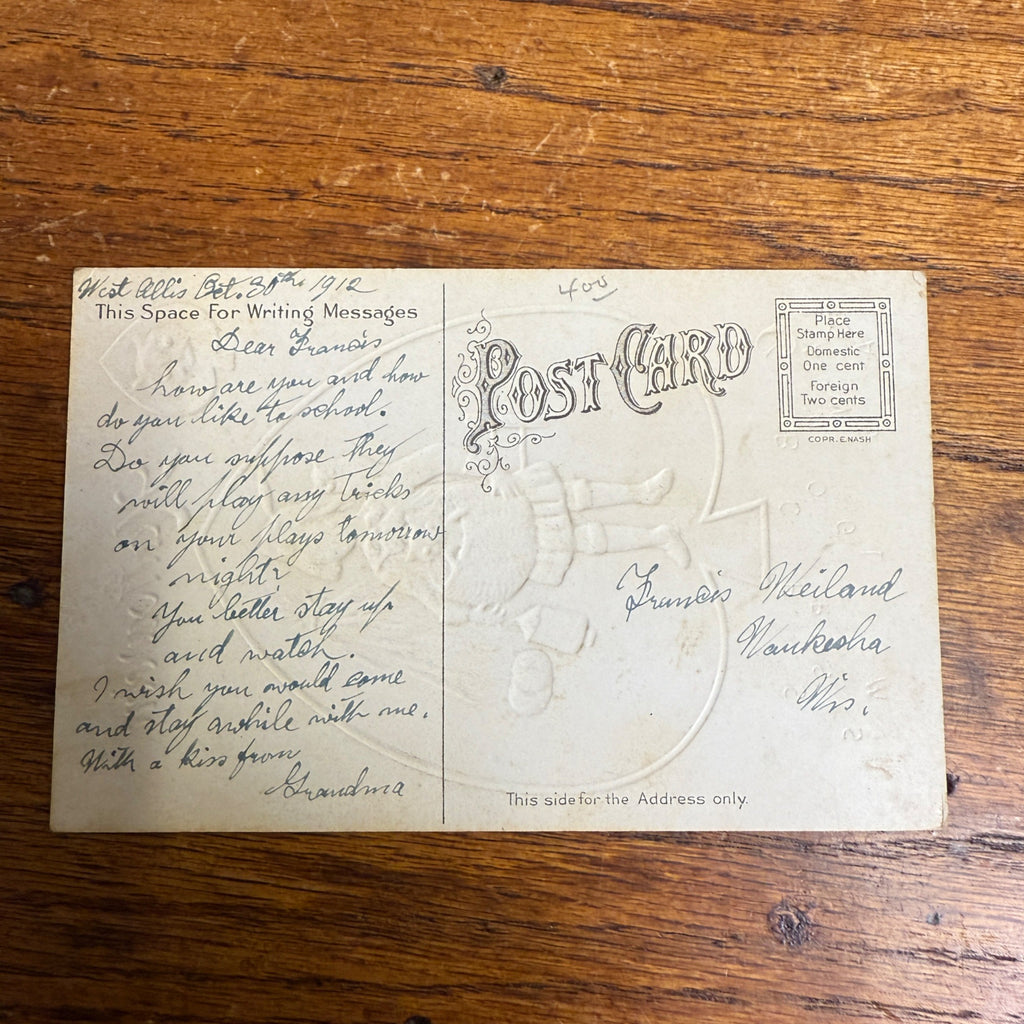 West Allis Oct. 30th 1912
This Space For Writing Messages
Dear Francis
how are you and how
do you like to school.
Do you suppose they
will play any Tricks
on your plays tomorrow
night?
You better stay up
and watch.
I wish you would come
and stay awhile with me.
With a kiss from
Grandma
400
POST CARD
Place
Stamp Here
Domestic
One cent
Foreign
Two cents
COPR. E. NASH
Francis Weiland
Waukesha
Wis.
This side for the Address only.